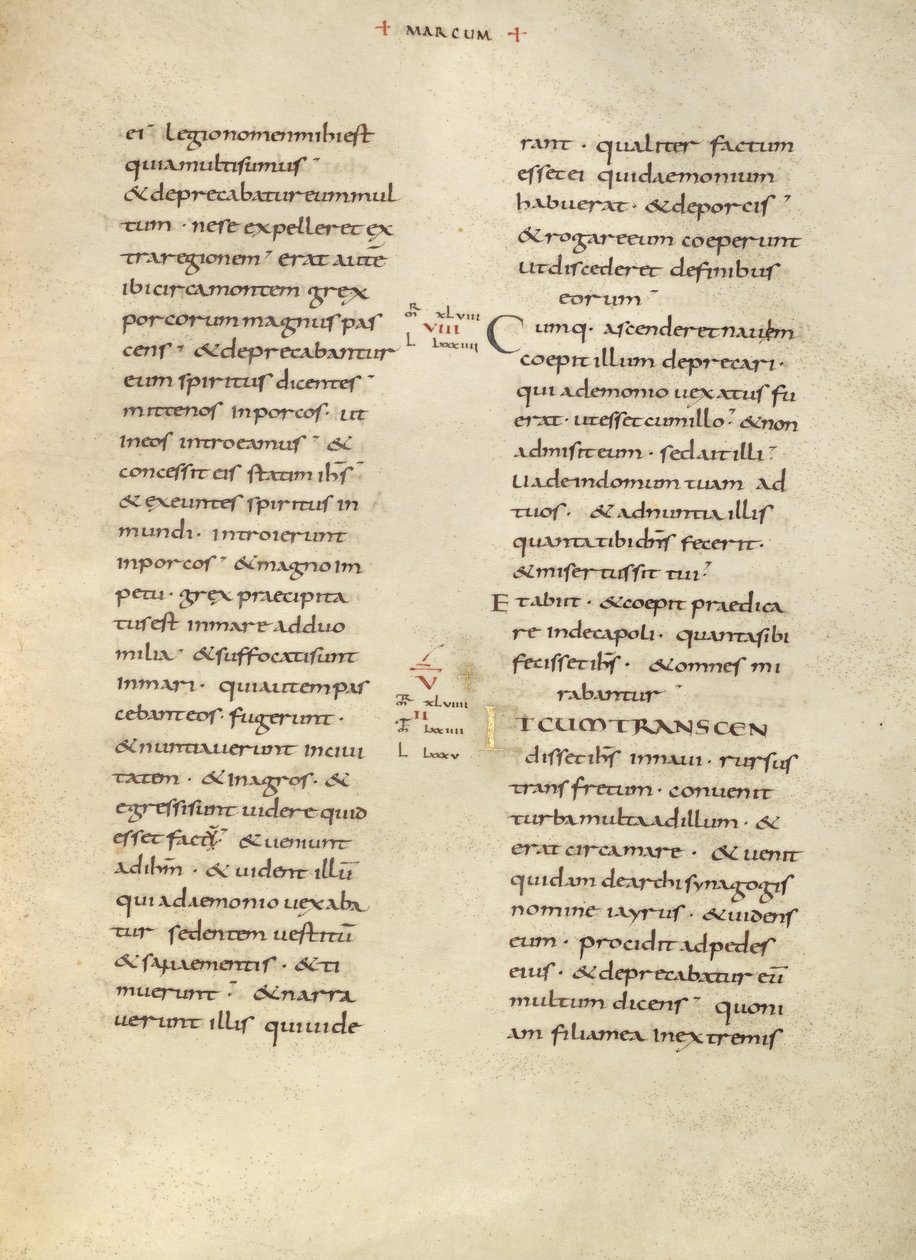 + MARCUM +
ei legionomenmihiest
quiamultisumus
&deprecabatureummul
tum · nese expelleret ex
traregionem erat autē
ibicircamontem grex
porcorum magnus pas
cens &deprecabantur
eum spiritus dicentes
mittenos inporcos · ut
ineos introeamus &
concessit eis statim ihs̄
& exeuntes spiritus in
mundi · introierunt
inporcos &magno im
petu · grex praecipita
tusest inmare adduo
milia &suffocatisunt
inmari · quiautempas
cebanteos · fugerunt ·
&nuntiaverunt inciui
tatem · &inagros · &
egressisunt videre quid
esset factū &veniunt
adihm̄ · &vident illū
qui adaemonio vexaba
tur sedentem vestitū
&sanaementis · &ti
muerunt &narra
verunt illis quiuide
xlviii
VIII
L lxxxiiii
V
xlviiii
II
lxxiiii
L lxxxv
rant · qualiter factum
esset ei quidaemonium
habuerat · &deporcis
&rogareeum coeperunt
utdiscederet definibus
eorum
Cumq· ascenderet navem
coepit illum deprecari ·
qui ademonio vexatus fu
erat · utessetcumillo &non
admisiteum · sedaitilli
Uadeindomum tuam ad
tuos · &adnuntiaillis
quantatibidn̄s fecerit ·
&misertussit tui
Etabiit · &coepit praedica
re indecapoli · quantasibi
fecissetihs̄ · &omnes mi
rabantur
ETCUMTRANSCEN
dissetihs̄ innaui · rursus
transfretum · convenit
turbamultaadillum · &
erat circamare · &uenit
quidam dearchisynagogis
nomine iayrus · &uidens
eum · procidit adpedes
eius · &deprecabatur eū
multum dicens quoni
am filiamea inextremis